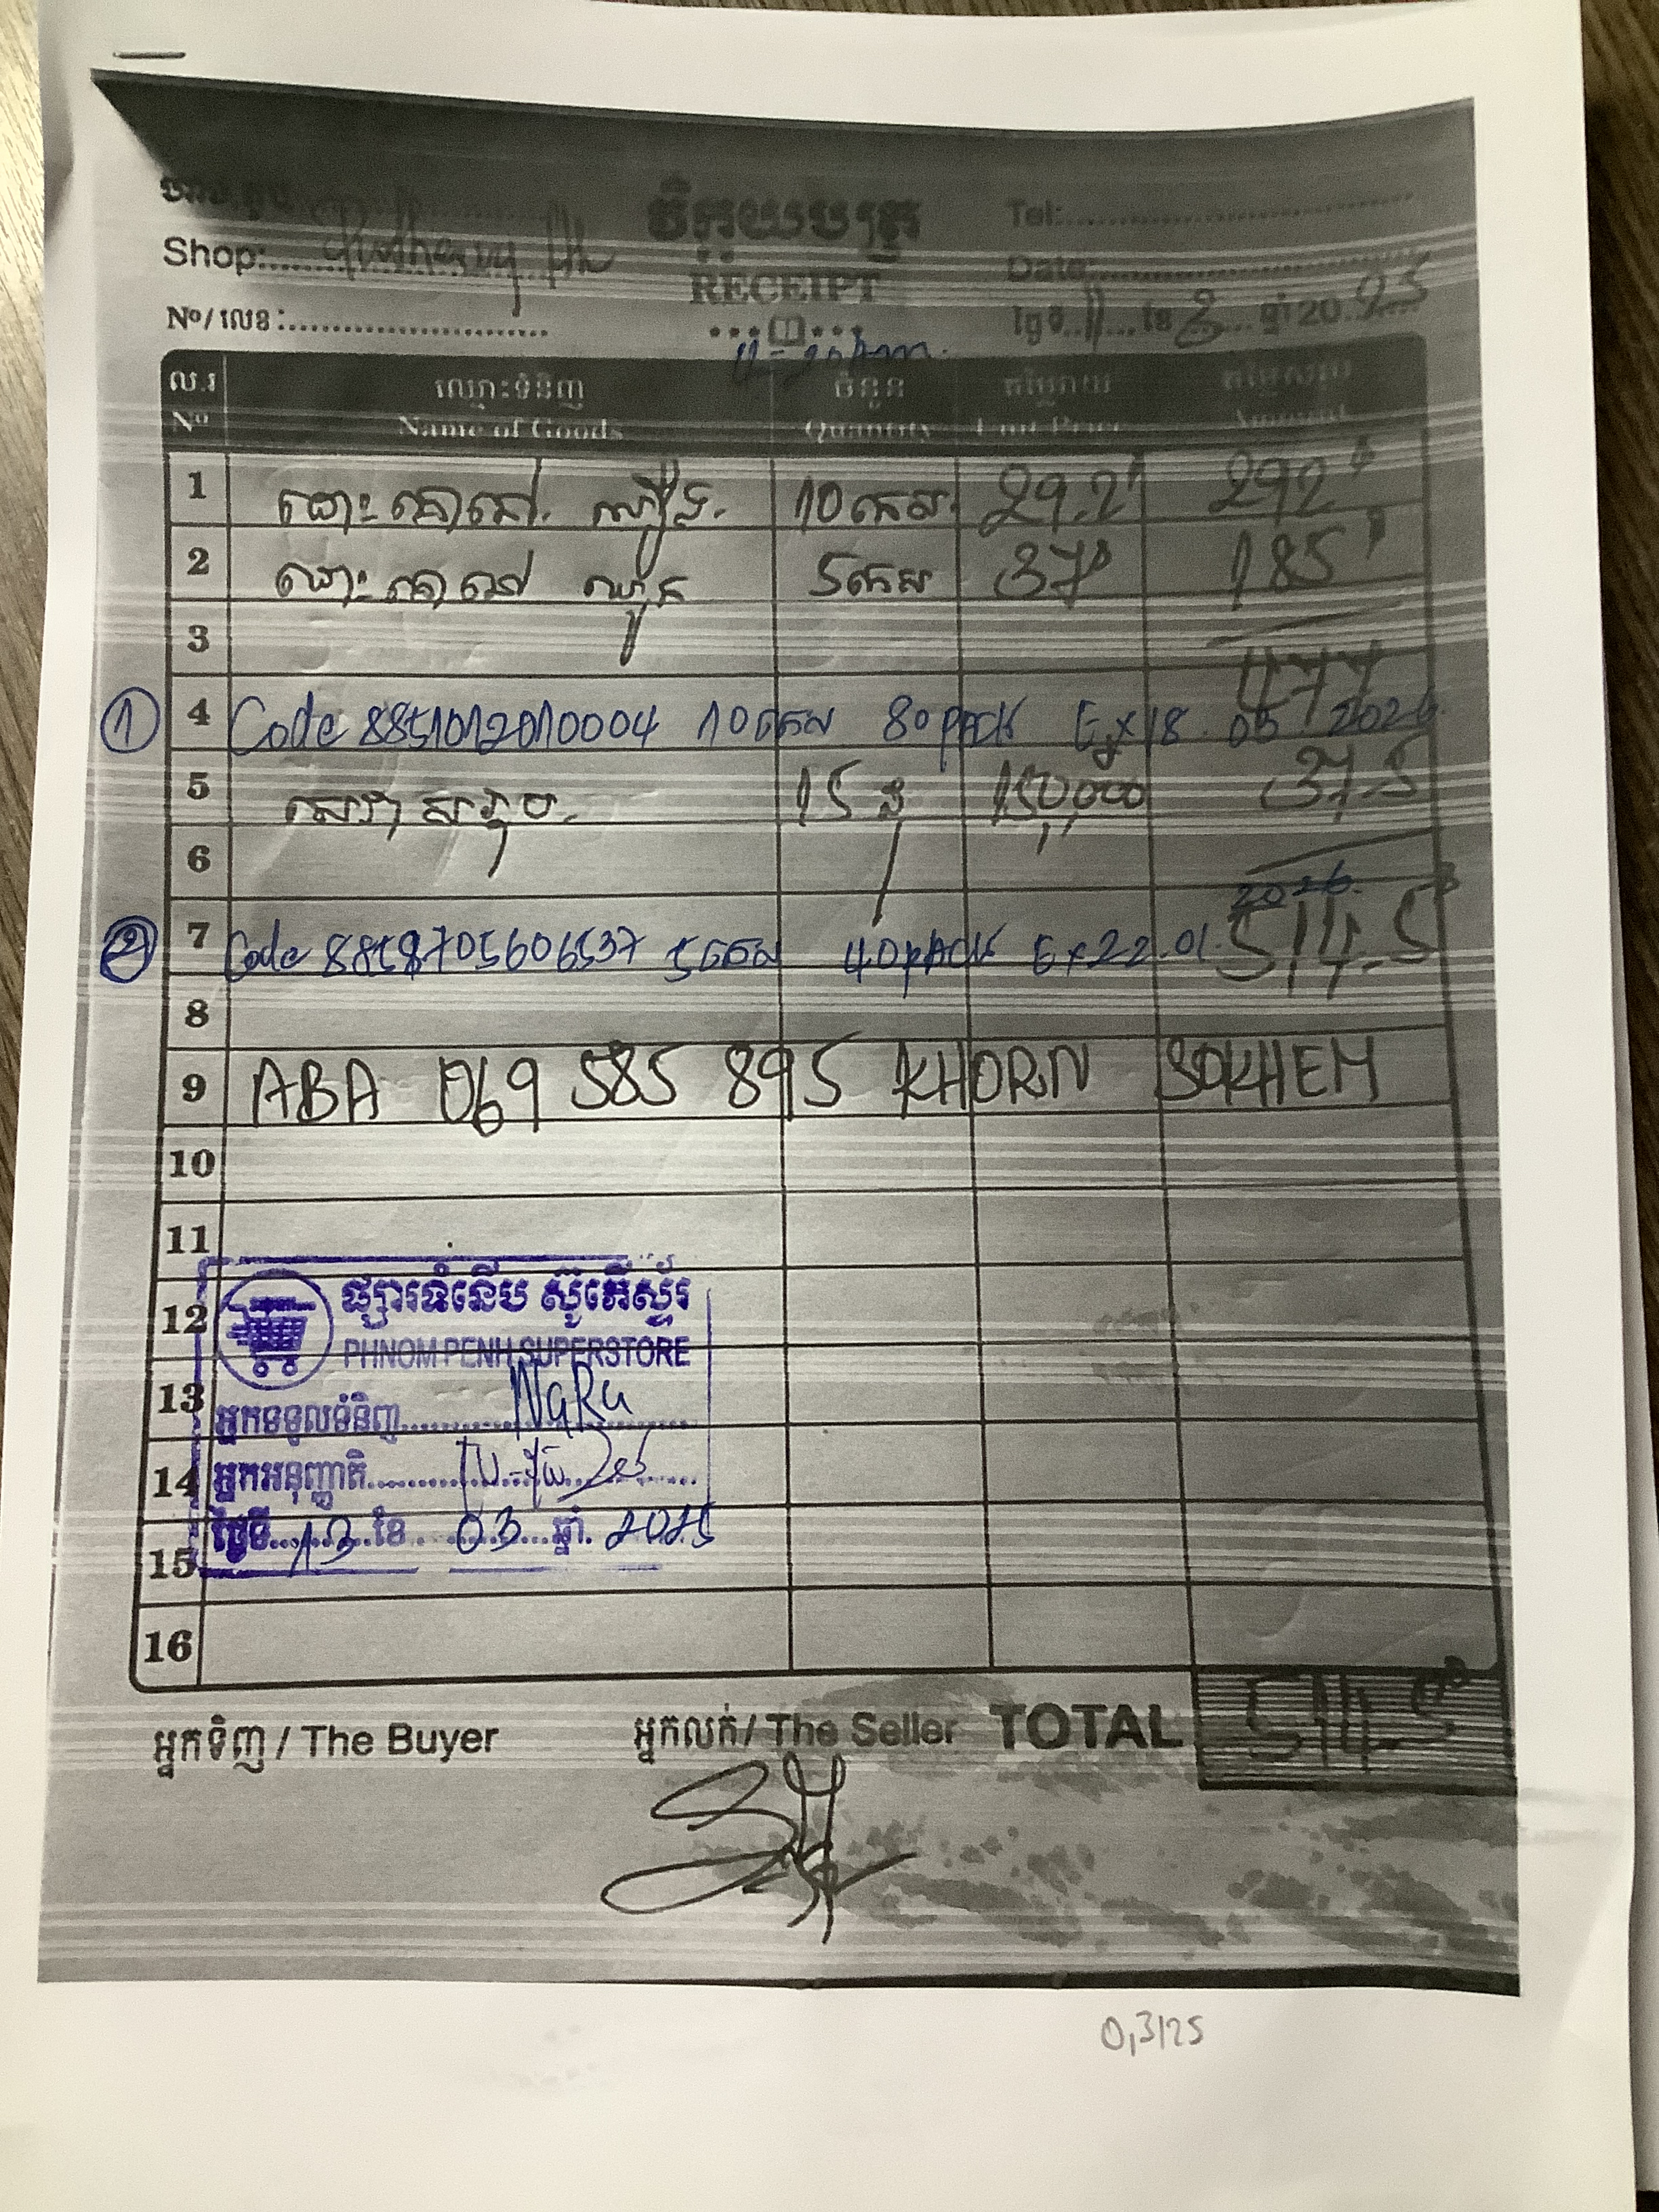 Shop:
វិក្កយបត្រ
RECEIPT
Tel:
Date:
Nº/លេខ:
ថ្ងៃទី 11 ខែ 3 ឆ្នាំ 2025
ល.រ ឈ្មោះទំនិញ ចំនួន តម្លៃរាយ តម្លៃសរុប
Nº Name of Goods Quantity Unit Price Amount
1 10កេស 29.2$ 292$
2 5កេស 37$ 185$
3 477
① 4 Code 8851012010004 10កេស 80pack Ex 18.05.2026
5 15 150,000 37.5
6
② 7 Code 8858705606537 5កេស 40pack Ex 22.01.2026 514.5$
8
9 ABA 069 585 895 KHORN SOKHEM
10
11
12 ផ្សារទំនើប ស៊ូភើស្ទ័រ
PHNOM PENH SUPERSTORE
13 អ្នកទទួលទំនិញ NaRu
14 អ្នកអនុញ្ញាតិ
15 ថ្ងៃទី 13 ខែ 03 ឆ្នាំ 2025
16
អ្នកទិញ / The Buyer អ្នកលក់ / The Seller TOTAL 514.5$
0,3125